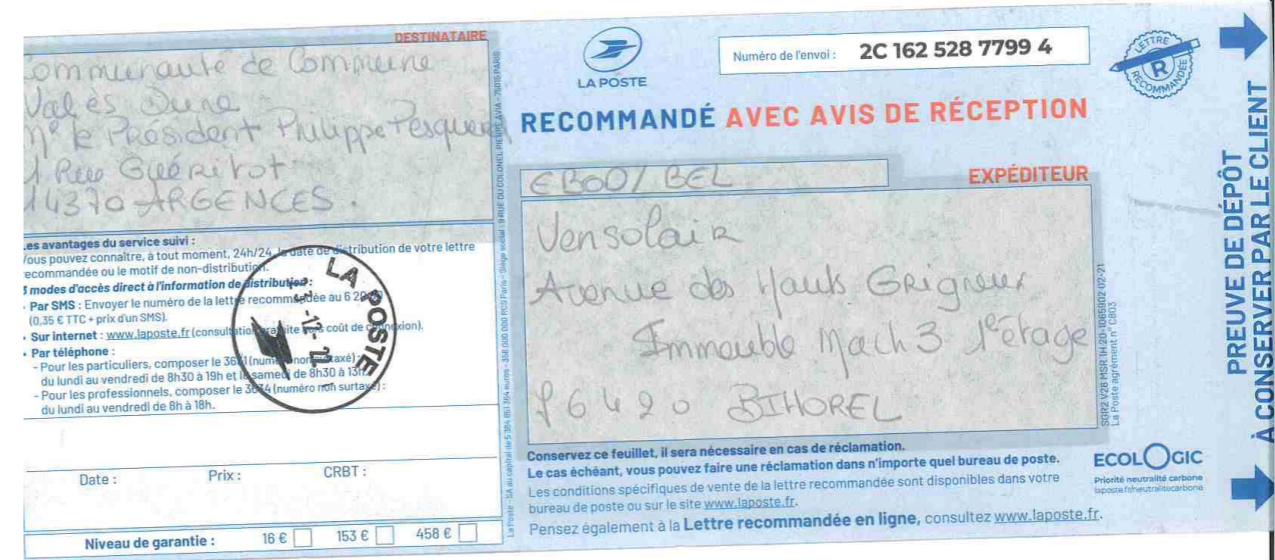 DESTINATAIRE
ommunauté de Commune
Val ès Dune
Mr le Président Philippe Pesquerel
1 Rue Guéritot
14370 ARGENCES.
Les avantages du service suivi :
Vous pouvez connaître, à tout moment, 24h/24, la date de distribution de votre lettre
recommandée ou le motif de non-distribution.
3 modes d'accès direct à l'information de distribution :
· Par SMS : Envoyer le numéro de la lettre recommandée au 6 20
(0,35 € TTC + prix d'un SMS).
· Sur internet : www.laposte.fr (consultation gratuite hors coût de connexion).
· Par téléphone :
- Pour les particuliers, composer le 3631 (numéro non surtaxé) :
du lundi au vendredi de 8h30 à 19h et le samedi de 8h30 à 13h.
- Pour les professionnels, composer le 3634 (numéro non surtaxé) :
du lundi au vendredi de 8h à 18h.
LA POSTE
-12-21
Date :
Prix :
CRBT :
Niveau de garantie :
16 €
153 €
458 €
La Poste - SA au capital de 5 364 851 364 euros - 356 000 000 RCS Paris - Siège social : 9 RUE DU COLONEL PIERRE AVIA - 75015 PARIS
LA POSTE
Numéro de l'envoi : 2C 162 528 7799 4
LETTRE
R
RECOMMANDÉE
RECOMMANDÉ AVEC AVIS DE RÉCEPTION
EBOO/BEL
EXPÉDITEUR
Vensolair
Avenue des Hauts Grigneux
Immeuble Mach 3 1er étage
76420 BIHOREL
SGR2 V28 MSR 1H 20-1065902 02-21
La Poste agrément n° C803
Conservez ce feuillet, il sera nécessaire en cas de réclamation.
Le cas échéant, vous pouvez faire une réclamation dans n'importe quel bureau de poste.
Les conditions spécifiques de vente de la lettre recommandée sont disponibles dans votre
bureau de poste ou sur le site www.laposte.fr.
Pensez également à la Lettre recommandée en ligne, consultez www.laposte.fr.
ECOLOGIC
Priorité neutralité carbone
laposte.fr/neutralitecarbone
PREUVE DE DÉPÔT
À CONSERVER PAR LE CLIENT